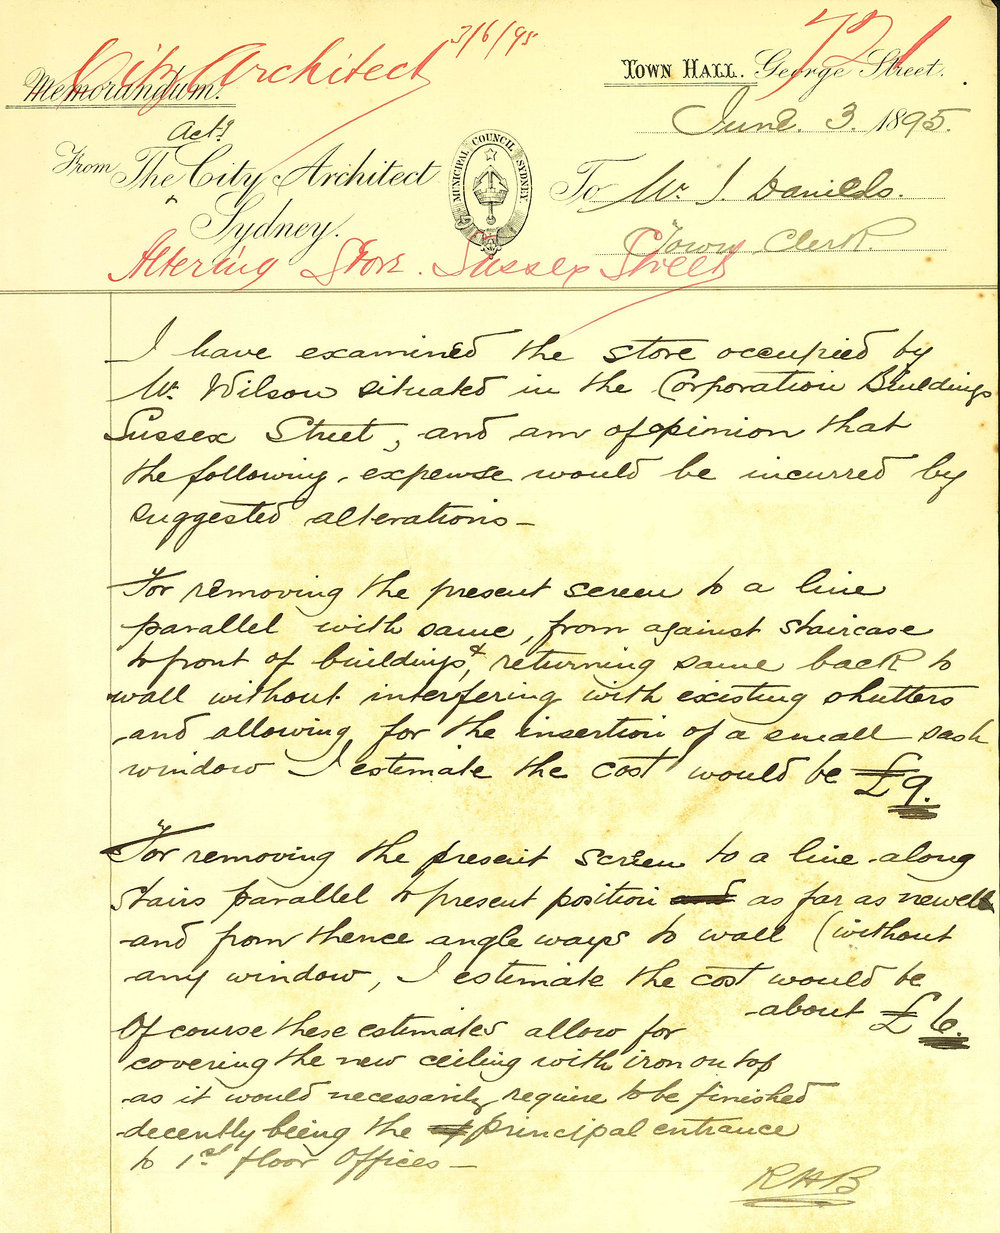 City Architect 3/6/95
721
Memorandum.
TOWN HALL. George Street.
June. 3. 1895.
Actg
From The City Architect
Sydney.
MUNICIPAL COUNCIL SYDNEY.
To Mr. J. Daniels.
Town Clerk.
Altering Store. Sussex Street
I have examined the store occupied by
Mr. Wilson situated in the Corporation Buildings
Sussex Street, and am of opinion that
the following expense would be incurred by
suggested alterations –
For removing the present screen to a line
parallel with same, from against staircase
to front of buildings, & returning same back to
wall without interfering with existing shutters
and allowing for the insertion of a small sash
window I estimate the cost would be £9.
For removing the present screen to a line along
stairs parallel to present position and as far as newell
and from thence angle ways to wall (without
any window, I estimate the cost would be
about £6.
Of course these estimates allow for
covering the new ceiling with iron on top
as it would necessarily require to be finished
decently being the principal entrance
to 1st floor offices –
RHB